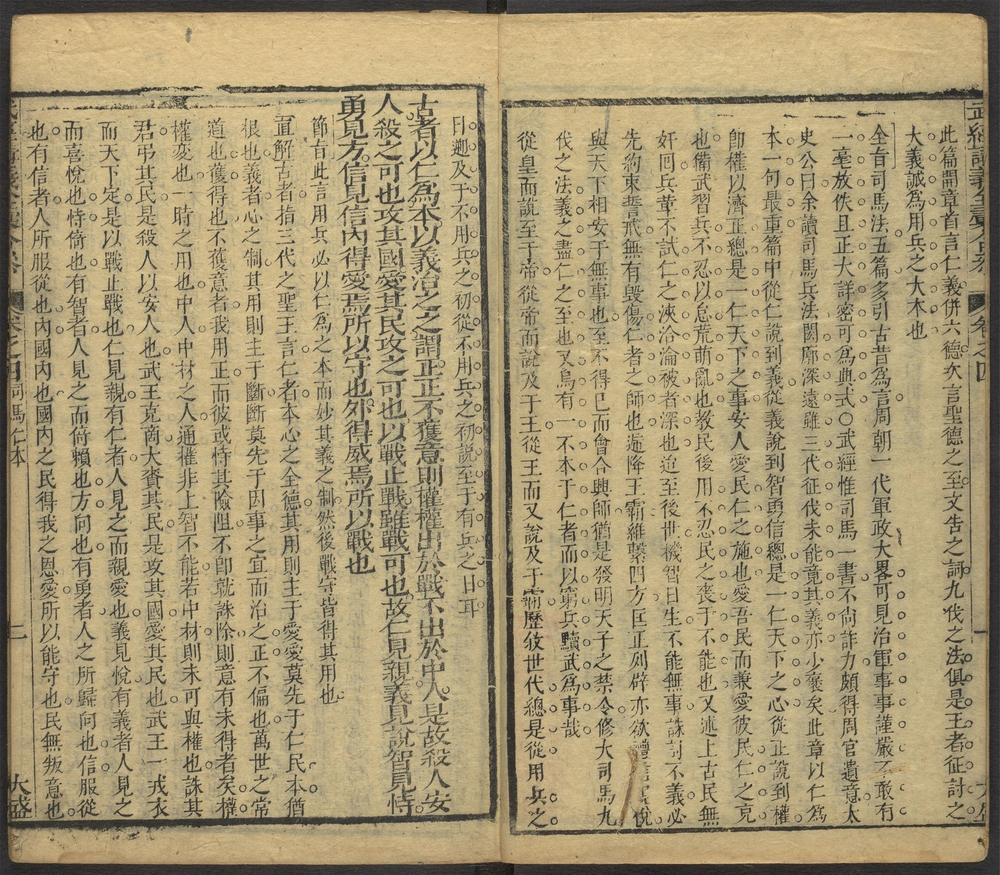 此篇開章首言仁義併六德次言聖德之至文告之詞九伐之法俱是王者征討之
大義誠為用兵之大本也
全旨司馬法五篇多引古昔為言周朝一代軍政大畧可見治軍事事謹嚴不敢有
一毫放佚且正大詳密可為典式○武經惟司馬一書不尚詐力頗得周官遺意太
史公曰余讀司馬兵法閎廓深遠雖三代征伐未能竟其義亦少褒矣此章以仁為
本一句最重篇中從仁說到義從義說到智勇信總是一仁天下之心從正說到權
即權以濟正總是一仁天下之事安人愛民仁之施也愛吾民而兼愛彼民仁之克
也備武習兵不忍以怠荒萌亂也教民後用不忍民之喪于不能也又述上古民無
奸回兵革不試仁之浹洽淪被者深也迨至後世機智日生不能無事誅討不義必
先約束誓戒無有毀傷仁者之師也遞降王霸維繫四方匡正列辟亦欲
與天下相安于無事也至不得已而會合興師猶是發明天子之禁令修大司馬九
伐之法義之盡仁之至也又烏有一不本于仁者而以窮兵黷武為事哉
從皇而說至于帝從帝而說及于王從王而又說及于霸歷敘世代總是從用兵之
日遡及于不用兵之初從不用兵之初說至于有兵之日耳
古者以仁為本以義治之之謂正正不獲意則權權出於戰不出於中人是故殺人安
人殺之可也攻其國愛其民攻之可也以戰止戰雖戰可也故仁見親義見說智見恃
勇見方信見信內得愛焉所以守也外得威焉所以戰也
節旨此言用兵必以仁為之本而妙其義之制然後戰守皆得其用也
直解古者指三代之聖王言仁者本心之全德其用則主于愛愛莫先于仁民本猶
根也義者心之制其用則主于斷斷莫先于因事之宜而治之正不偏也萬世之常
道也獲得也不獲意者我用正而彼或恃其險阻不即就誅除則意有未得者矣權
權变也一時之用也中人中材之人通權非上智不能若中材則未可與權也誅其
君弔其民是殺人以安人也武王克商大賚其民是攻其國愛其民也武王一戎衣
而天下定是以戰止戰也仁見親有仁者人見之而親愛也義見悅有義者人見之
而喜悅也恃倚也有智者人見之而倚賴也方向也有勇者人之所歸向也信服從
也有信者人所服從也內國內也國內之民得我之恩愛所以能守也民無叛意也
卷之四
司馬仁本
二
大盛